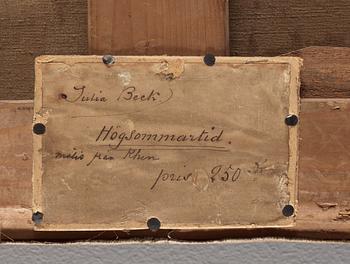 Julia Beck
Högsommartid.
motiv från Rhen
pris 250 Kr